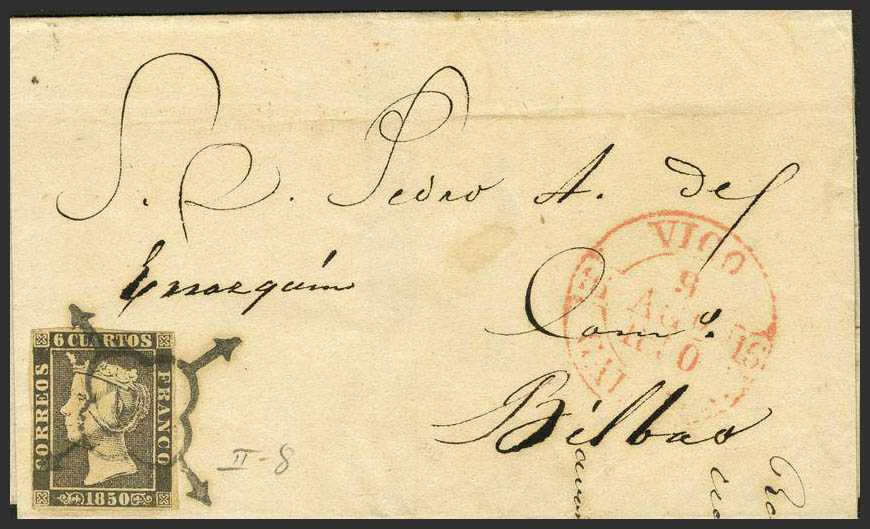 S. D. Pedro A. de
Errazquin
Com.º
Bilbao
VICO
8
AGO
1850
15
6 CUARTOS
CORREOS
FRANCO
1850
II-8